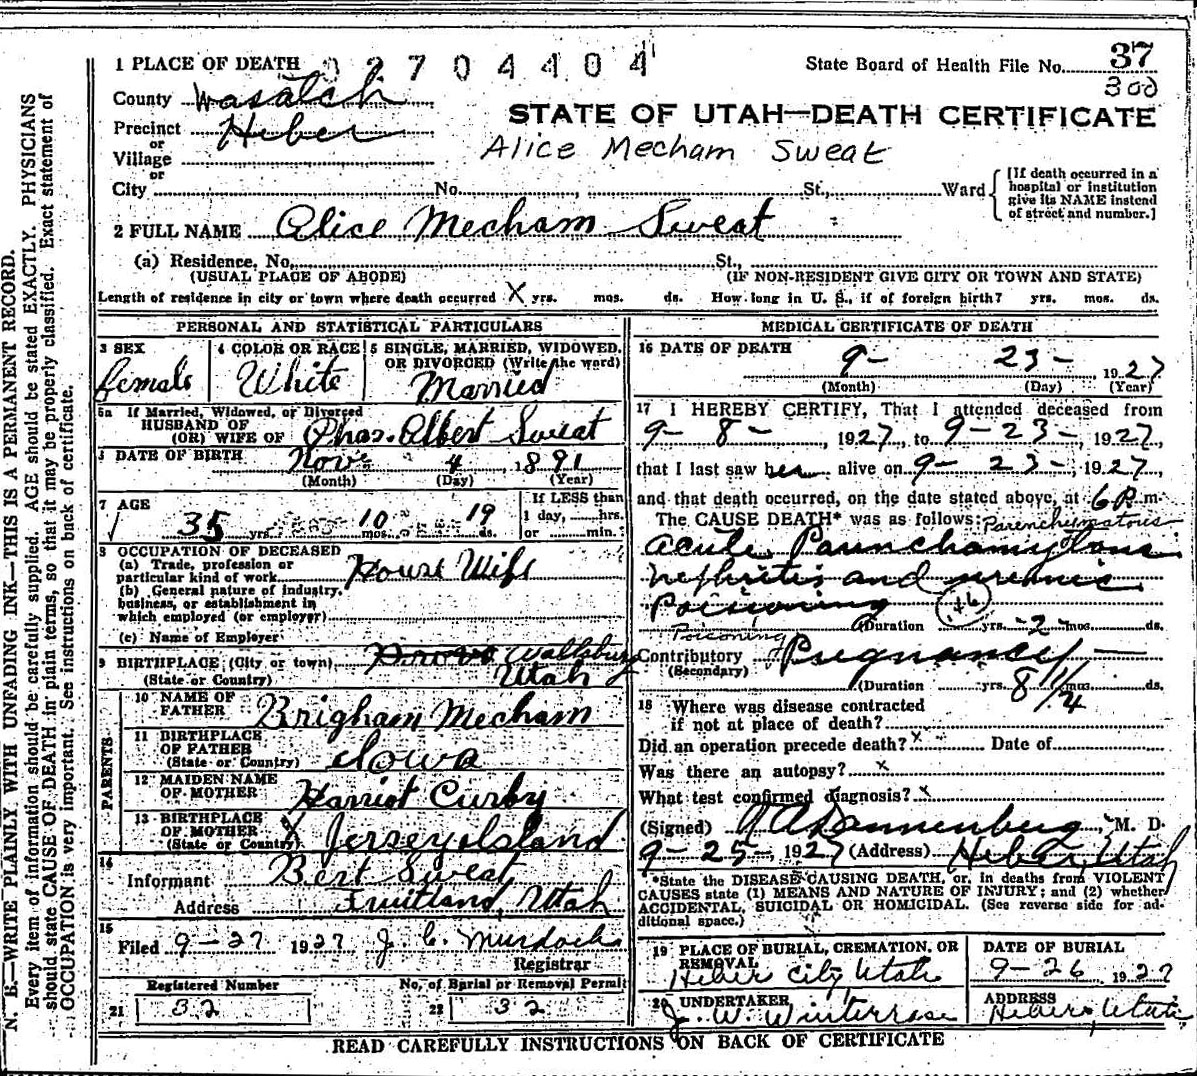 1 PLACE OF DEATH 02704404
State Board of Health File No. 37
300
County Wasatch
STATE OF UTAH—DEATH CERTIFICATE
Precinct Heber
or
Village
Alice Mecham Sweat
or
City No. , St., Ward
[If death occurred in a
hospital or institution
give its NAME instead
of street and number.]
2 FULL NAME Alice Mecham Sweat
(a) Residence, No. St.,
(USUAL PLACE OF ABODE) (IF NON-RESIDENT GIVE CITY OR TOWN AND STATE)
Length of residence in city or town where death occurred X yrs. mos. ds. How long in U. S., if of foreign birth? yrs. mos. ds.
PERSONAL AND STATISTICAL PARTICULARS
3 SEX
female
4 COLOR OR RACE
White
5 SINGLE, MARRIED, WIDOWED,
OR DIVORCED (Write the word)
Married
5a If Married, Widowed, or Divorced
HUSBAND OF
(OR) WIFE OF Chas. Albert Sweat
DATE OF BIRTH Nov. 4 1891
(Month) (Day) (Year)
7 AGE
35 yrs. 10 mos. 19 ds.
If LESS than
1 day, hrs.
or min.
8 OCCUPATION OF DECEASED
(a) Trade, profession or
particular kind of work House Wife
(b) General nature of industry,
business, or establishment in
which employed (or employer)
(c) Name of Employer
9 BIRTHPLACE (City or town) Provo Wallsburg
(State or Country) Utah
PARENTS
10 NAME OF
FATHER Brigham Mecham
11 BIRTHPLACE
OF FATHER
(State or Country) Iowa
12 MAIDEN NAME
OF MOTHER Harriot Curby
13 BIRTHPLACE
OF MOTHER
(State or Country) X Jersey Island
14
Informant Bert Sweat
Address Fruitland, Utah
15
Filed 9-27 1927 J. C. Murdock
Registrar
Registered Number
21 32
No. of Burial or Removal Permit
22 32
MEDICAL CERTIFICATE OF DEATH
16 DATE OF DEATH 9- 23- 1927
(Month) (Day) (Year)
17 I HEREBY CERTIFY, That I attended deceased from
9-8-, 1927, to 9-23-, 1927,
that I last saw her alive on 9-23-, 1927
and that death occurred, on the date stated above, at 6 P. m
The CAUSE DEATH* was as follows: Parenchumatous
acute Parenchamytous
nephritis and uremic
Poisoning 16
(Duration yrs. -2- mos. ds.
Poisoning
Contributory Pregnancy
(Secondary)
(Duration yrs. 8 1/4 mos. ds.
18 Where was disease contracted
if not at place of death?
Did an operation precede death? x Date of
Was there an autopsy? x
What test confirmed diagnosis? x
(Signed) Dannenberg, M. D.
9-25-, 1927 (Address) Heber, Utah
*State the DISEASE CAUSING DEATH, or, in deaths from VIOLENT
CAUSES state (1) MEANS AND NATURE OF INJURY; and (2) whether
ACCIDENTAL, SUICIDAL OR HOMICIDAL. (See reverse side for ad-
ditional space.)
19 PLACE OF BURIAL, CREMATION, OR
REMOVAL
Heber City, Utah
DATE OF BURIAL
9-26 1927
20 UNDERTAKER
J. W. Winterrose
ADDRESS
Heber, Utah
READ CAREFULLY INSTRUCTIONS ON BACK OF CERTIFICATE
N. B.—WRITE PLAINLY WITH UNFADING INK—THIS IS A PERMANENT RECORD.
Every item of information should be carefully supplied. AGE should be stated EXACTLY. PHYSICIANS
should state CAUSE OF DEATH in plain terms, so that it may be properly classified. Exact statement of
OCCUPATION is very important. See instructions on back of certificate.